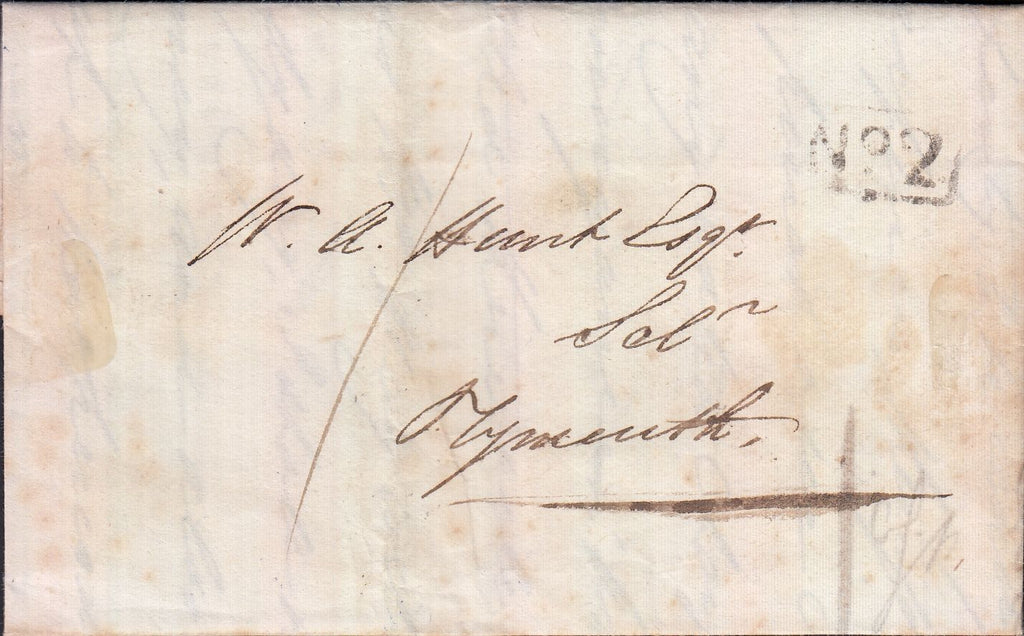 No 2
W. A. Hunt Esqr.
Solr
Plymouth.